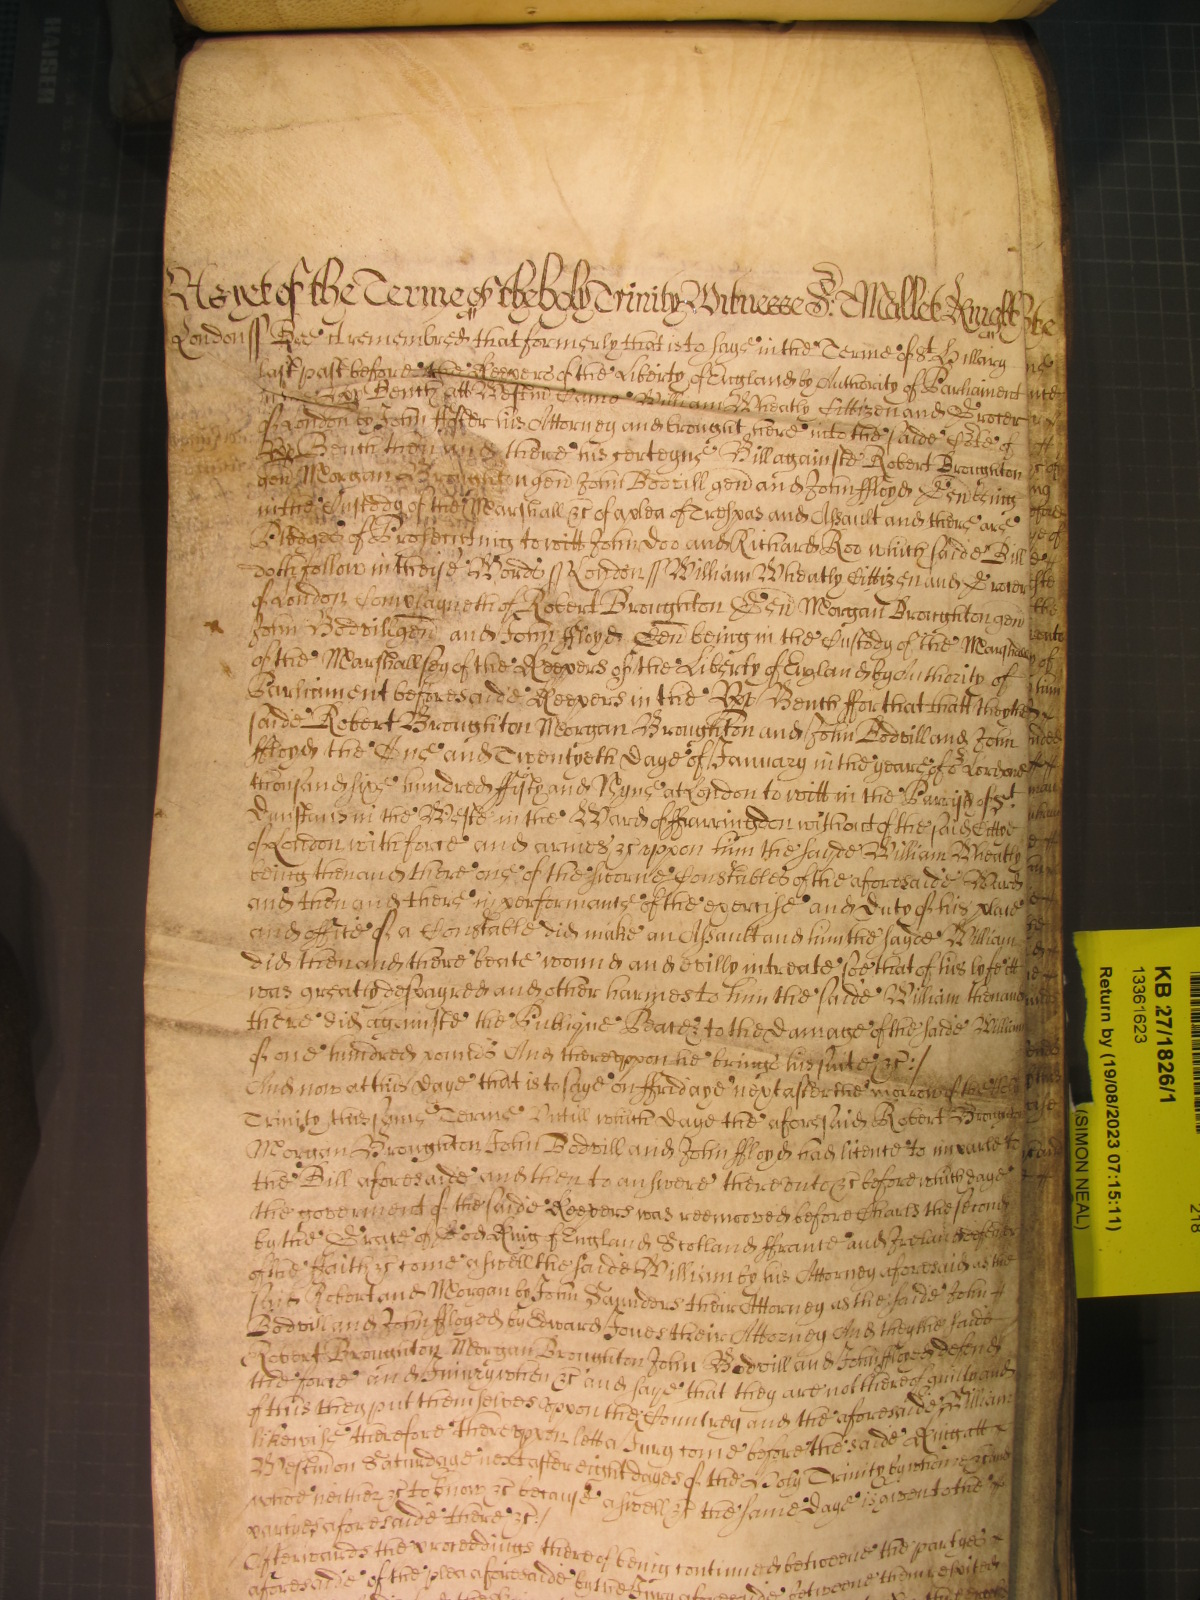 As yet of the Terme of the holy Trinity Witnesse Sr. T. Mallet Knight
London ss Bee it remembred that formerly that is to saye in the Terme of St. Hillary
last past before the Keepers of the Liberty of England by Authority of Parliament
Bench att Westm Came William Wheatly Cittizen and Grocer
of London by John ffster his Attorney and brought here into the saide Co:te of
Vpp Bench then and there his certeyne Bill againste Robert Broughton
gen Morgan Broughton gen John Bodvill gen and John ffloyd Gen being
in the Custody of the Marshall &c of a plea of Trespas and Assault and there are
Pledges of Prosecuting to witt John Doo and Richard Roo which saide Bill
doth follow in theise Words ss London ss William Wheatly Cittizen and Grocer
of London Complayneth of Robert Broughton Gen Morgan Broughton gen
John Bodvill gen and John ffloyd Gen being in the Custody of the Marshall
of the Marshallsey of the Keepers of the Liberty of England by Authority of
Parliament beforesaide Keepers in the Vpp Bench ffor that that they the
saide Robert Broughton Morgan Broughton and John Bodvill and John
ffloyd the One and Twentyeth daye of January in the yeare of or Lord one
thousand sixe hundred ffifty and Nyne at London to witt in the Parrish of St.
Dunstans in the Weste in the Ward of ffarringdon without of the said Cittye
of London with force and armes &c vppon him the sayde William Wheatly
being then and there one of the sworne Constables of the aforesaide Ward
and then and there in performance of the exercise and duty of his place
and office of a Constable did make an Assault and him the sayde William
did then and there beate wound and evilly intreate soe that of his lyfe itt
was greatly despayred and other harmes to him the saide William then and
there did againste the Publique Peace & to the damage of the saide William
of one hundred pounds And therevppon he brings his suite &c:/
And now at this daye that is to saye on ffridaye next after the morrow of the Holy
Trinity this same Terme Vntill which daye the aforesaid Robert Broughton
Morgan Broughton John Bodvill and John ffloyd had licence to imparle to
the Bill aforesaide and then to answere therevnto &c before which daye
the goverment of the saide Keepers was remooved before Charles the second
by the Grace of God King of England Scotland ffrance and Ireland defender
of the ffaith &c come aswell the saide William by his Attorney aforesaid as the
said Robert and Morgan by John Saunders their Attorney as the saide John
Bodvill and John ffloyd by Edward Jones their Attorney And they the saide
Robert Broughton Morgan Broughton John Bodvill and John ffloyd defend
the force and Iniury when &c and saye that they are not thereof guilty and
of this they put themselves vpon the Countrey and the aforesaide William
likewise therefore therevppon lett a Jury come before the saide King att
Westm on Saturdaye next after eight dayes of the Holy Trinity by whome &c and
whoe neither &c to know &c because aswell &c the same daye is given to the
partyes aforesaide there &c:/
Afterwards the proceedings thereof being continued betweene the partyes
aforesaide of the plea aforesaide by the Jury aforesaide betweene them respited
KAISER
KB 27/1826/1
13361623
Return by (19/08/2023 07:15:11)
(SIMON NEAL)
218